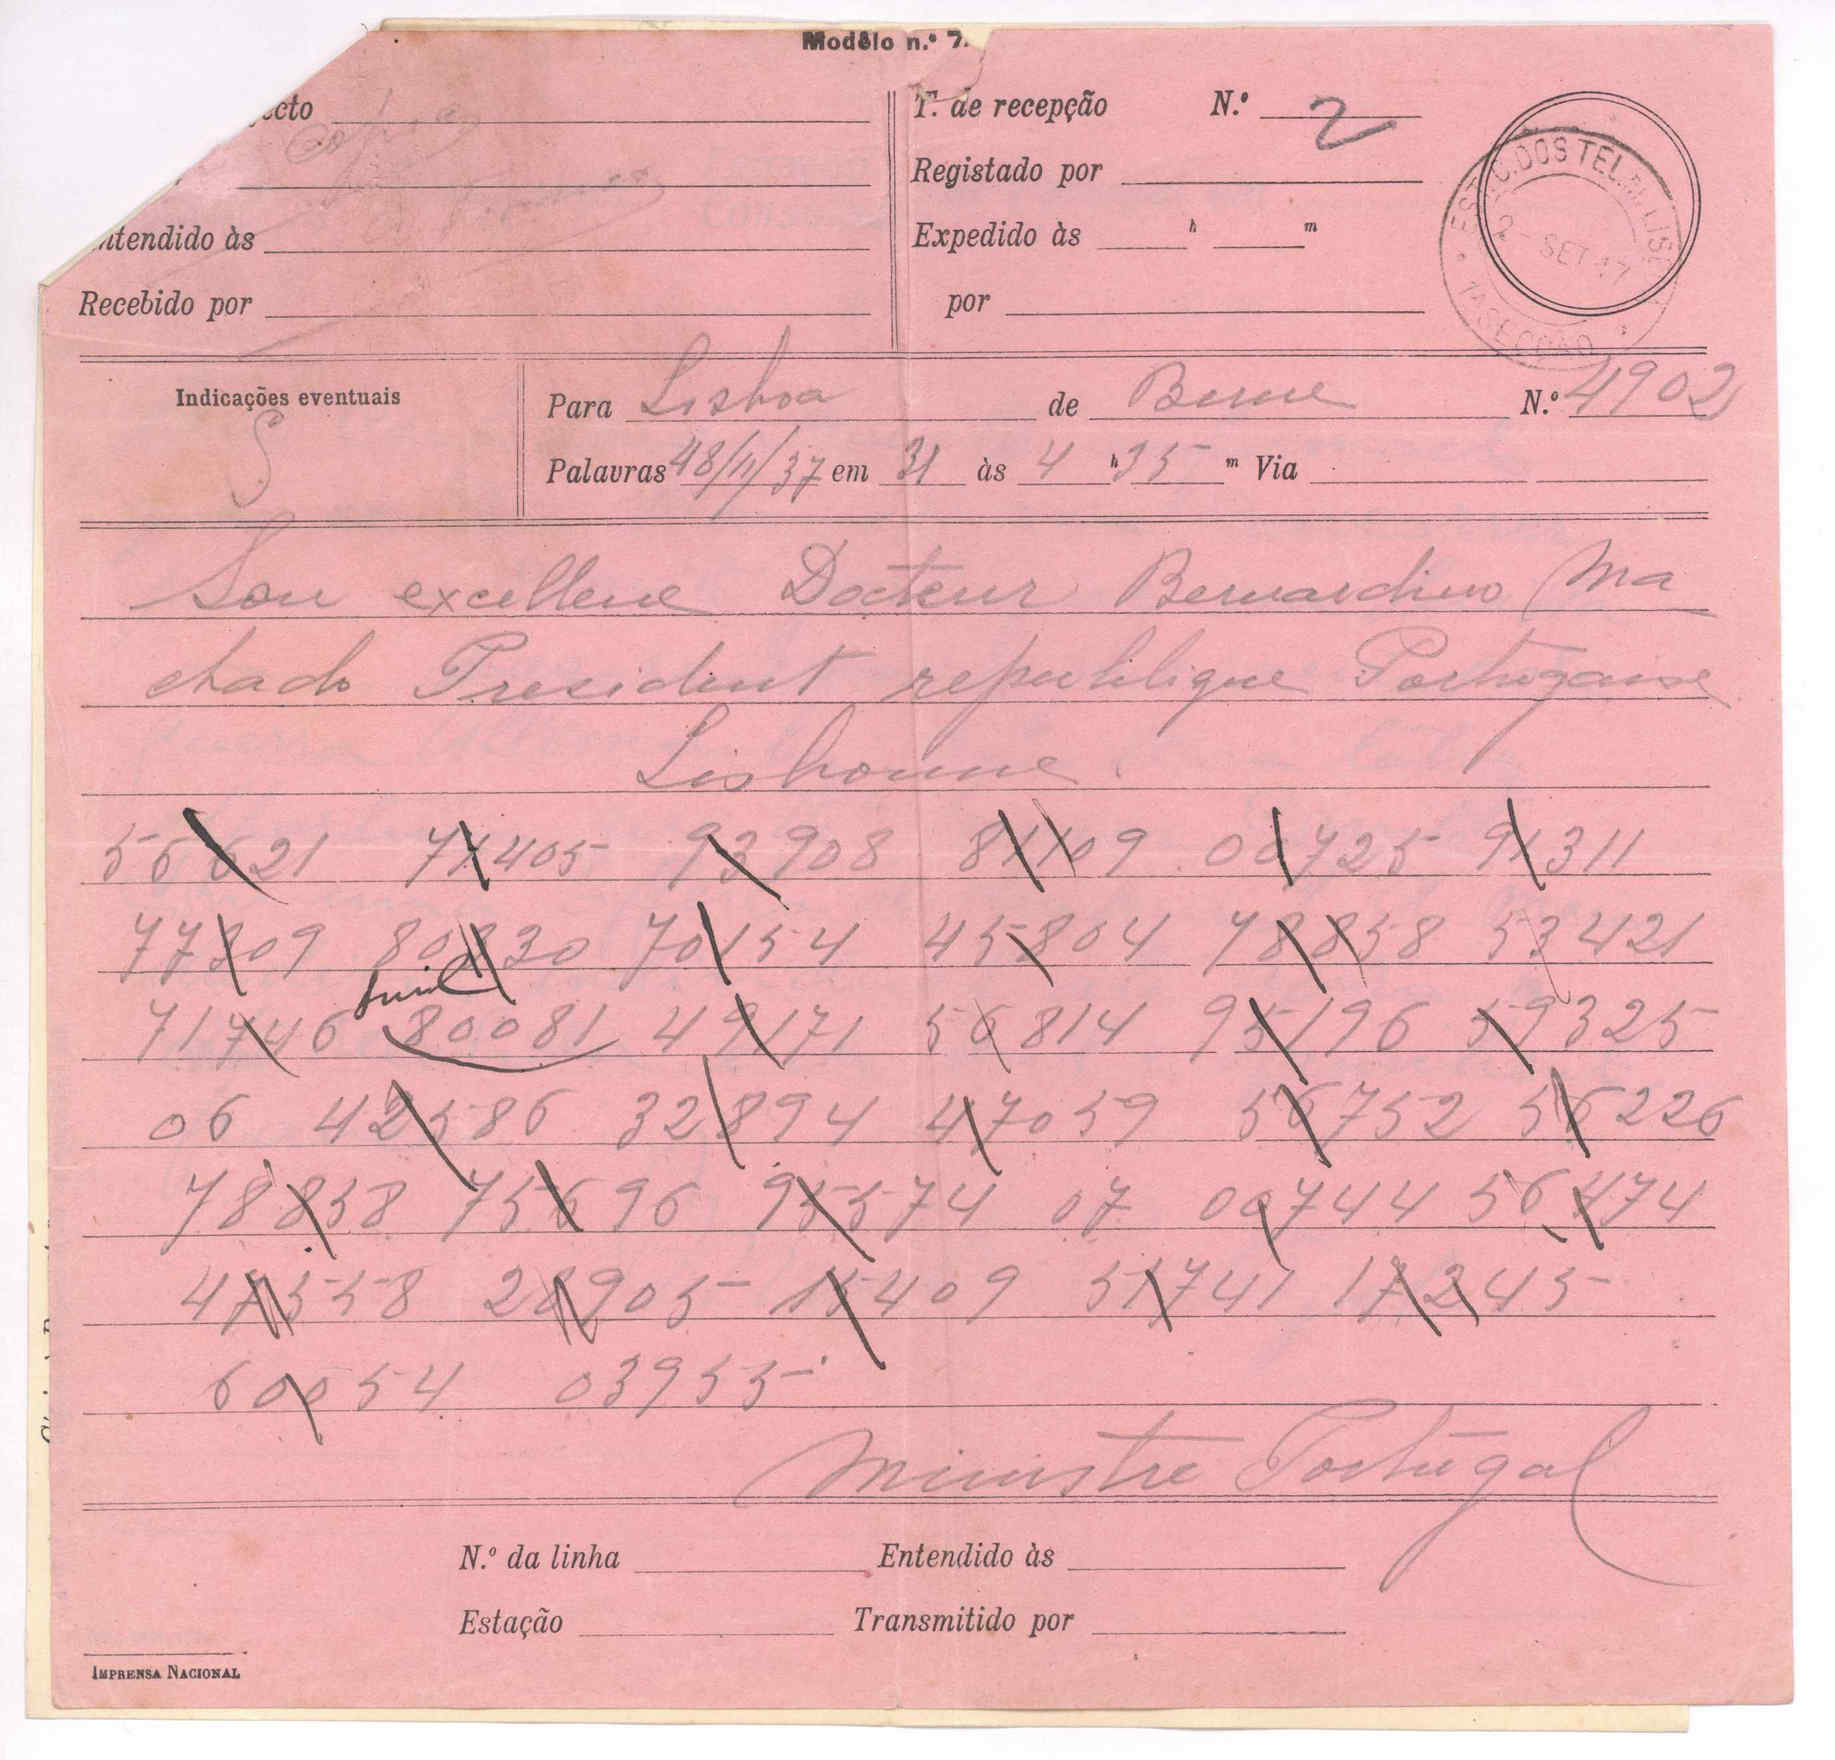 Modêlo n.º 7.
ecto
T. de recepção N.º 2
Registado por
ntendido às
Expedido às h m
Recebido por
por
ESTAC. DOS TEL. LISB
2 - SET 17
1ª SECÇÃO
Indicações eventuais
S
Para Lisboa de Berne N.º 4902
Palavras 48/11/37 em 31 às 4 h 35 m Via
Son excellence Docteur Bernardino Ma
chado President republique Portugaise
Lisbonne
55621 77405 93908 81109 00725 91311
77309 80830 70154 45804 78858 53421
71746 80081 49171 56814 95196 59325
06 42586 32894 47059 56752 56226
78858 75696 95574 07 00744 56474
47558 28905 15409 51741 17245
60054 03955
Ministre Portugal
N.º da linha Entendido às
Estação Transmitido por
IMPRENSA NACIONAL